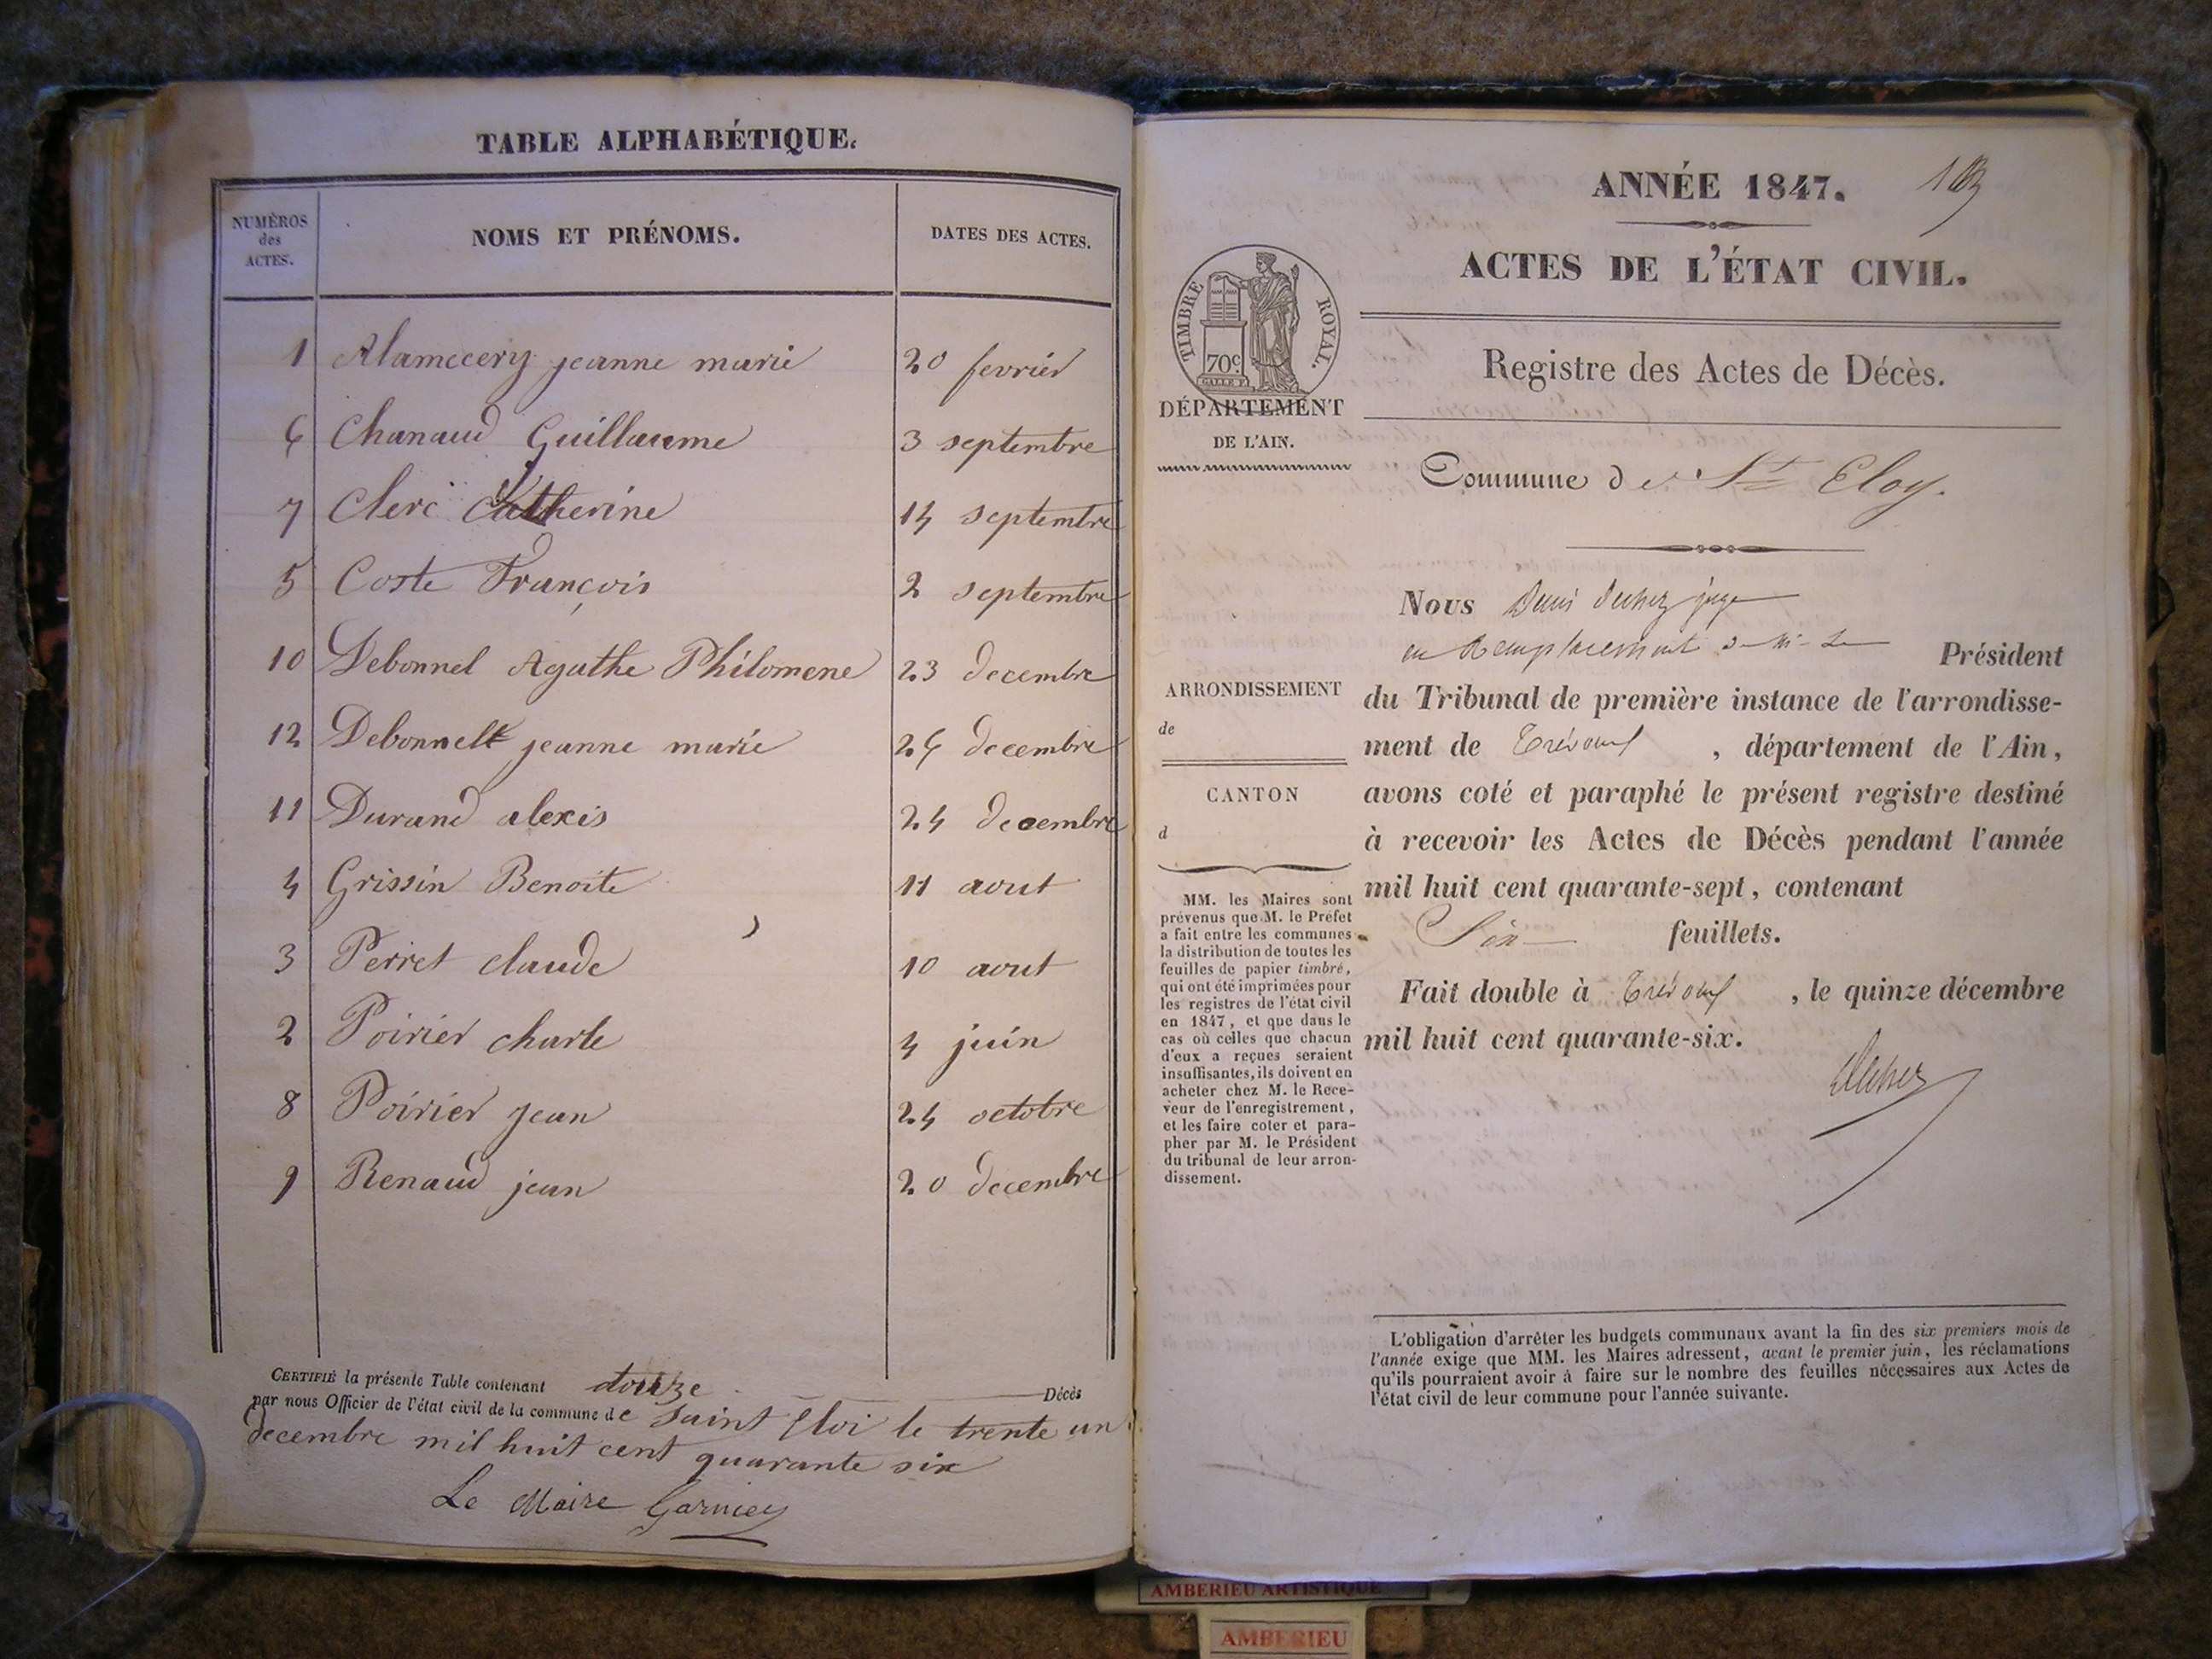 TABLE ALPHABÉTIQUE.
NUMÉROS des ACTES.
NOMS ET PRÉNOMS.
DATES DES ACTES.
1 Alamecery jeanne marie 20 fevrier
6 Chanaud Guillaume 3 septembre
7 Clerc Catherine 14 septembre
5 Coste François 2 septembre
10 Debonnel Agathe Philomene 23 decembre
12 Debonnelt jeanne marie 26 decembre
11 Durand alexis 24 decembre
4 Grissin Benoite 11 aout
3 Perret claude 10 aout
2 Poirier charle 4 juin
8 Poirier jean 24 octobre
9 Renaud jean 20 decembre
CERTIFIÉ la présente Table contenant douze Décès
par nous Officier de l'état civil de la commune de saint Eloi le trente un
decembre mil huit cent quarante six
Le Maire Garnier
ANNÉE 1847.
ACTES DE L'ÉTAT CIVIL.
TIMBRE ROYAL.
70c
DÉPARTEMENT
DE L'AIN.
Registre des Actes de Décès.
Commune de St Eloy.
ARRONDISSEMENT
de
CANTON
d
MM. les Maires sont
prévenus que M. le Préfet
a fait entre les communes
la distribution de toutes les
feuilles de papier timbré,
qui ont été imprimées pour
les registres de l'état civil
en 1847, et que dans le
cas où celles que chacun
d'eux a reçues seraient
insuffisantes, ils doivent en
acheter chez M. le Rece-
veur de l'enregistrement,
et les faire coter et para-
pher par M. le Président
du tribunal de leur arron-
dissement.
Nous juge
en Remplacement Président
du Tribunal de première instance de l'arrondisse-
ment de Trévoux, département de l'Ain,
avons coté et paraphé le présent registre destiné
à recevoir les Actes de Décès pendant l'année
mil huit cent quarante-sept, contenant
Six feuillets.
Fait double à Trévoux, le quinze décembre
mil huit cent quarante-six.
L'obligation d'arrêter les budgets communaux avant la fin des six premiers mois de
l'année exige que MM. les Maires adressent, avant le premier juin, les réclamations
qu'ils pourraient avoir à faire sur le nombre des feuilles nécessaires aux Actes de
l'état civil de leur commune pour l'année suivante.
AMBERIEU ARTISTIQUE
AMBERIEU